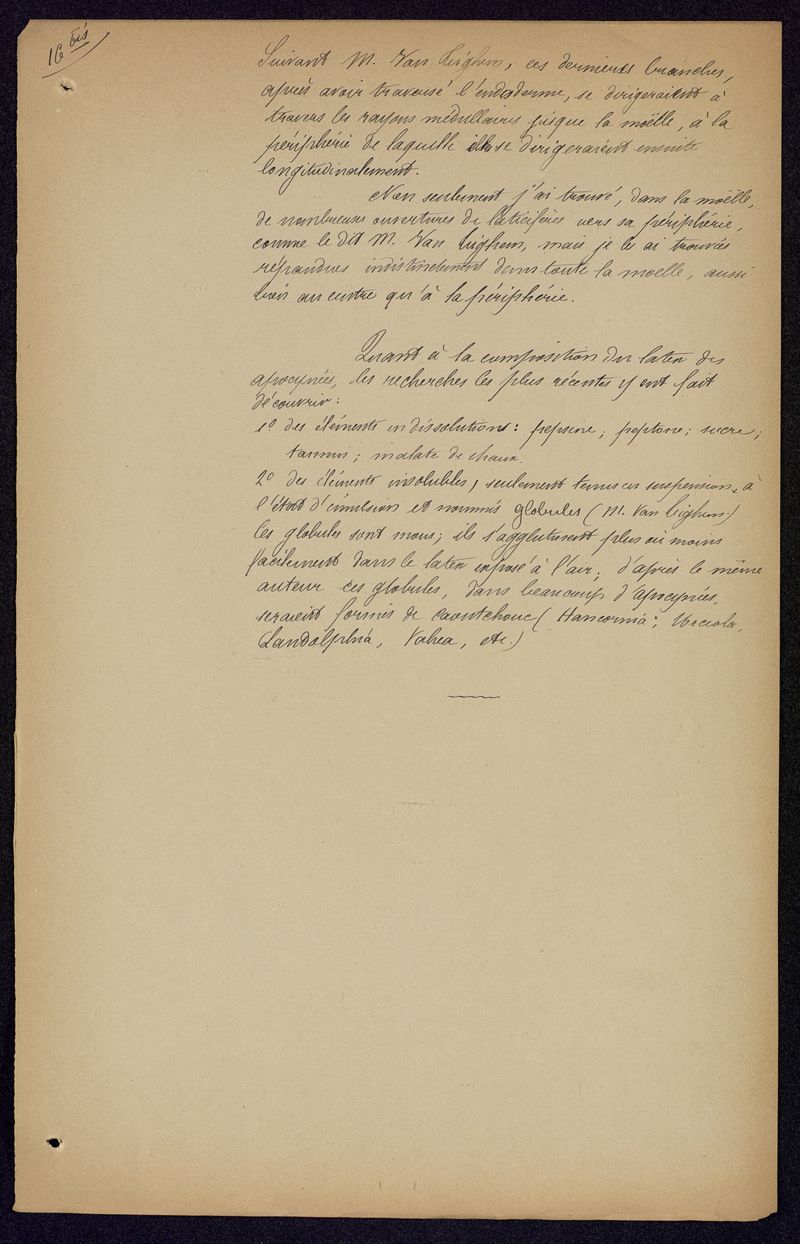 16 bis
Suivant M. Van Tieghem, ces dernières branches,
après avoir traversé l'endoderme, se dirigeraient à
travers les rayons médullaires jusque la moëlle, à la
périphérie de laquelle elles se dirigeraient ensuite
longitudinalement.
Non seulement j'ai trouvé, dans la moëlle,
de nombreuses ouvertures de laticifères vers sa périphérie,
comme le dit M. Van Tieghem, mais je les ai trouvées
répandues indistinctement dans toute la moelle, aussi
bien au centre qu'à la périphérie.
Quant à la composition du latex des
apocynées, les recherches les plus récentes y ont fait
découvrir :
1º des éléments en dissolutions : pepsine ; peptone ; sucre ;
tannin ; malate de chaux.
2º des éléments insolubles, seulement tenus en suspension, à
l'état d'émulsion et nommés globules (M. Van Tieghem)
Ces globules sont mous ; ils s'agglutinent plus ou moins
facilement dans le latex exposé à l'air ; d'après le même
auteur ces globules, dans beaucoup d'apocynées,
seraient formés de caoutchouc (Hancornia ; Urceola,
Landolphia, Vahea, etc.)